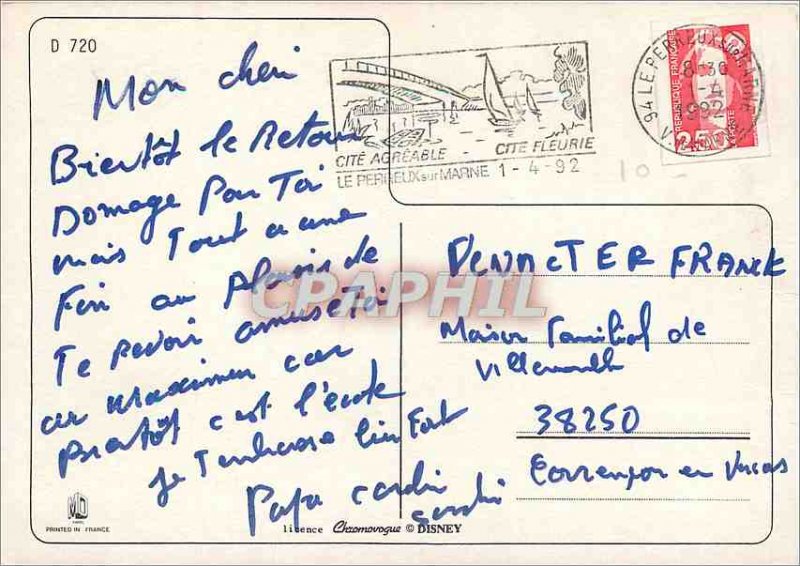 D 720
Mon cheri
Bientôt le Retour
Domage Pour Toi
mais Tout a une
Fin au Plaisir de
Te revoir amuse Toi
au maximum car
Bientôt c'est l'école
Je T'embrasse bien Fort
Papa
CITÉ AGRÉABLE CITÉ FLEURIE
LE PERREUX sur MARNE 1-4-92
94 LE PERREUX SUR MARNE
8-30
1-4
1992
REPUBLIQUE FRANÇAISE
LA POSTE
2,50
10-
FRANCK
Maison Familial de
38250
Corrençon en Vercors
CPAPHIL
MD
PARIS
PRINTED IN FRANCE
licence Chromovogue © DISNEY